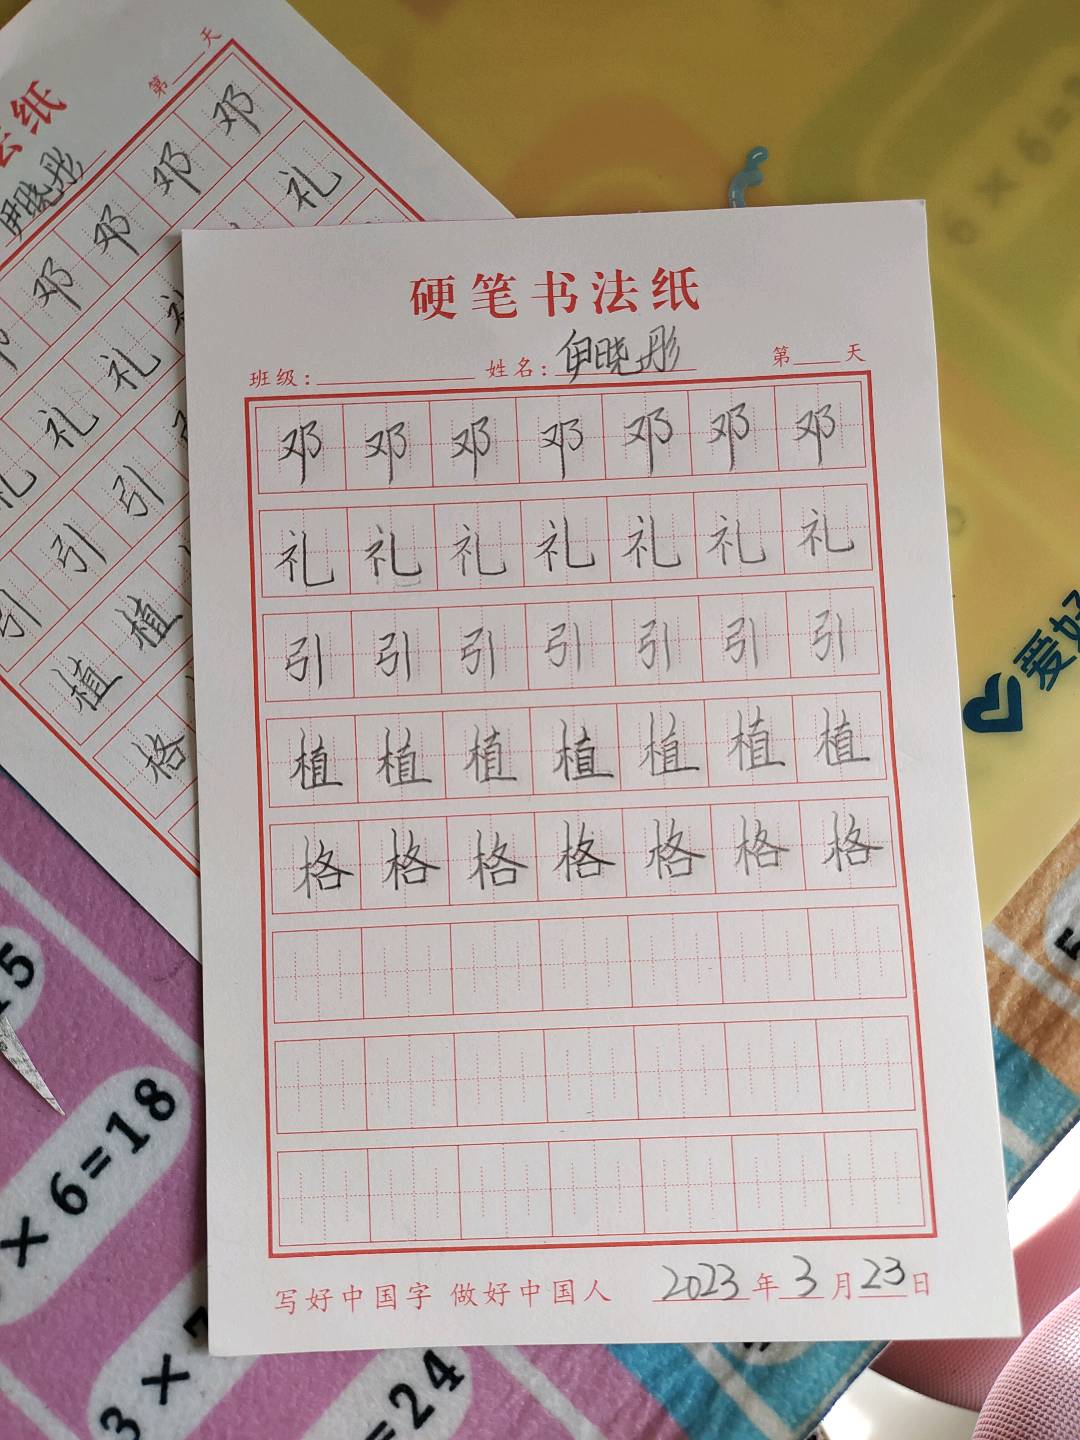 硬笔书法纸
班级: 姓名: 伊晓彤 第 天
邓 邓 邓 邓 邓 邓 邓
礼 礼 礼 礼 礼 礼 礼
引 引 引 引 引 引 引
植 植 植 植 植 植 植
格 格 格 格 格 格 格
写好中国字 做好中国人 2023年3月23日
纸
第 天
伊晓彤
邓 邓 邓 邓
礼 礼 礼 礼
引 引 引
植 植
格
爱好
6 × 6=
15
× 6=18
3 × 7
=24
5